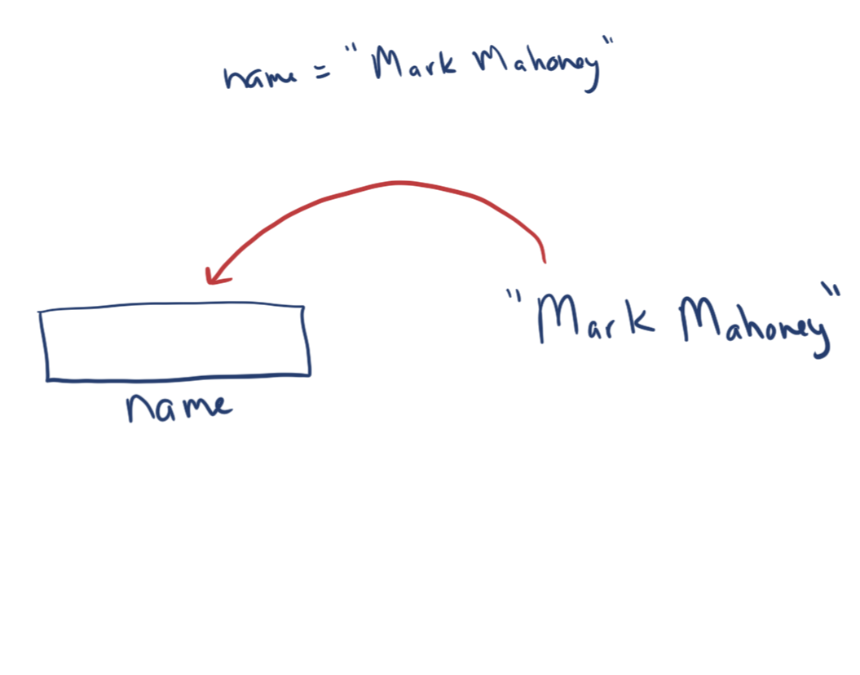 name = "Mark Mahoney"
"Mark Mahoney"
name